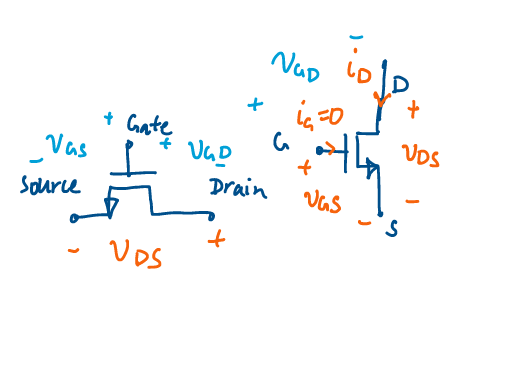 − +
Gate
VGS + VGD
− −
Source Drain
− VDS +
−
VGD iD
+ D
iG=0 +
G
+ VDS
VGS
− −
S